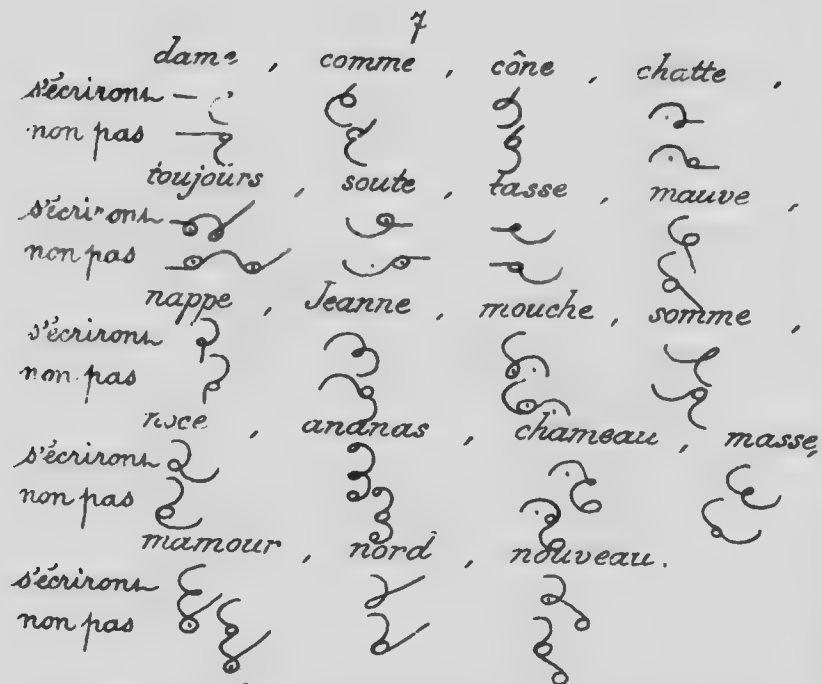 7
dame , comme , cône , chatte ,
s'écrirons
non pas
toujours , soute , tasse , mauve ,
s'écrirons
non pas
nappe , Jeanne , mouche , somme ,
s'écrirons
non pas
noce , ananas , chameau , masse,
s'écrirons
non pas
mamour , nord , nouveau.
s'écrirons
non pas